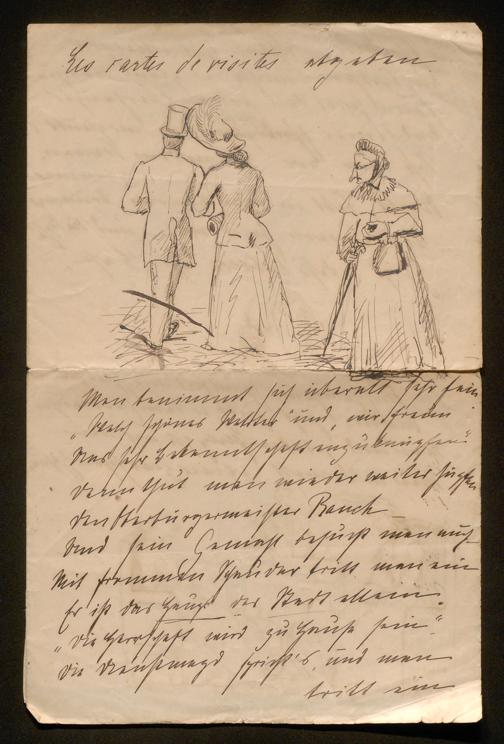 Les cartes de visites abgeben
Man benimmt sich überall sehr fein
„Welch schönes Wetter“ und „wir freun
uns sehr Bekanntschaft anzuknüpfen“
Dann thut man wieder weiter hüpfen
Den Oberbürgermeister Rauch
Und sein Gemahl besucht man auch
Mit frommem Schauder tritt man ein
Er ist das Haupt der Stadt allein.
„Die Herrschaft wird zu Hause sein“
Die Dienstmagd spricht's, und man
tritt ein